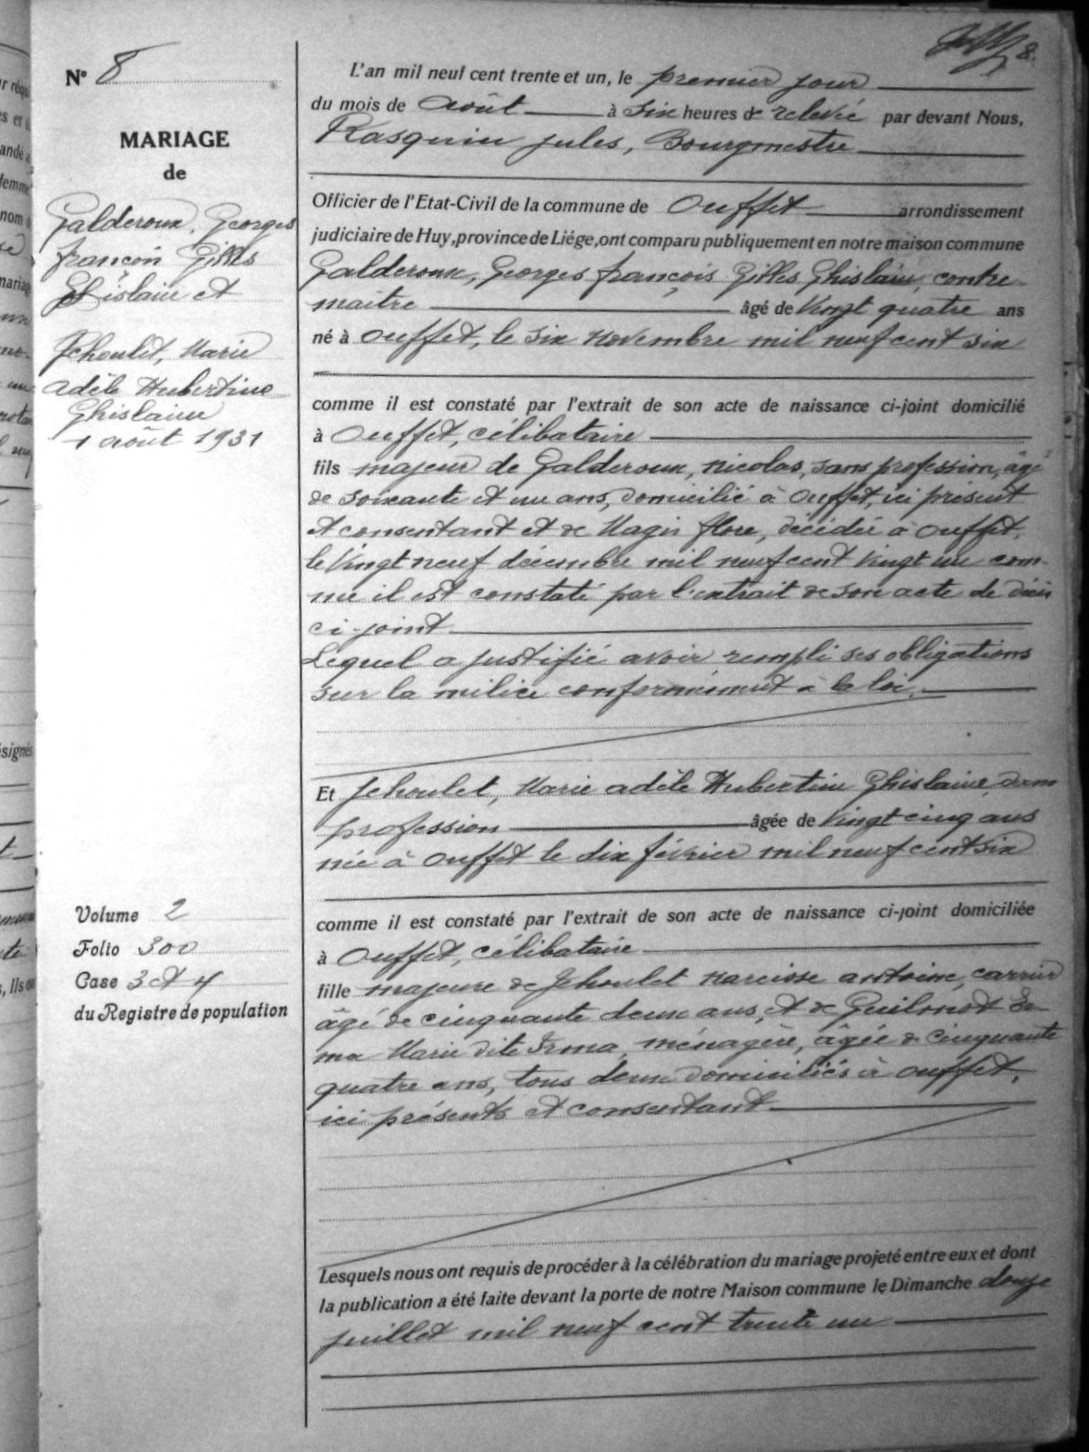 8.
N° 8
MARIAGE
de
Galderoux, Georges
françois Gilles
Ghislain et
Jehoulet, Marie
Adèle Hubertine
Ghislaine
1 août 1931
Volume 2
Folio 300
Case 3 et 4
du Registre de population
L'an mil neuf cent trente et un, le premier jour
du mois de août à six heures de relevée par devant Nous,
Rasquin Jules, Bourgmestre
Officier de l'Etat-Civil de la commune de Ouffet arrondissement
judiciaire de Huy, province de Liége, ont comparu publiquement en notre maison commune
Galderoux, Georges françois Gilles Ghislain, contre
maitre âgé de vingt quatre ans
né à Ouffet, le six novembre mil neuf cent six
comme il est constaté par l'extrait de son acte de naissance ci-joint domicilié
à Ouffet, célibataire
fils majeur de Galderoux, nicolas, sans profession, âgé
de soixante et un ans, domicilié à Ouffet, ici présent
et consentant et de Magis flore, décédée à Ouffet,
le vingt neuf décembre mil neuf cent vingt un com-
me il est constaté par l'extrait de son acte de décès
ci-joint
Lequel a justifié avoir rempli ses obligations
sur la milice conformément à la loi.
Et Jehoulet, Marie Adèle Hubertine Ghislaine, sans
profession âgée de vingt cinq ans
née à Ouffet le dix février mil neuf cent six
comme il est constaté par l'extrait de son acte de naissance ci-joint domiciliée
à Ouffet, célibataire
fille majeure de Jehoulet Narcisse Antoine, carrier
âgé de cinquante deux ans, et de Guilmot Em
ma Marie dite Irma, ménagère, âgée de cinquante
quatre ans, tous deux domiciliés à Ouffet,
ici présents et consentant
Lesquels nous ont requis de procéder à la célébration du mariage projeté entre eux et dont
la publication a été faite devant la porte de notre Maison commune le Dimanche douze
juillet mil neuf cent trente un